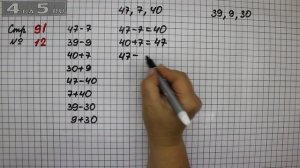 4на5.RU
Стр 91
№ 12
47-7
39-9
40+7
30+9
47-40
7+40
39-30
9+30
47, 7, 40
47-7=40
40+7=47
47-
39, 9, 30